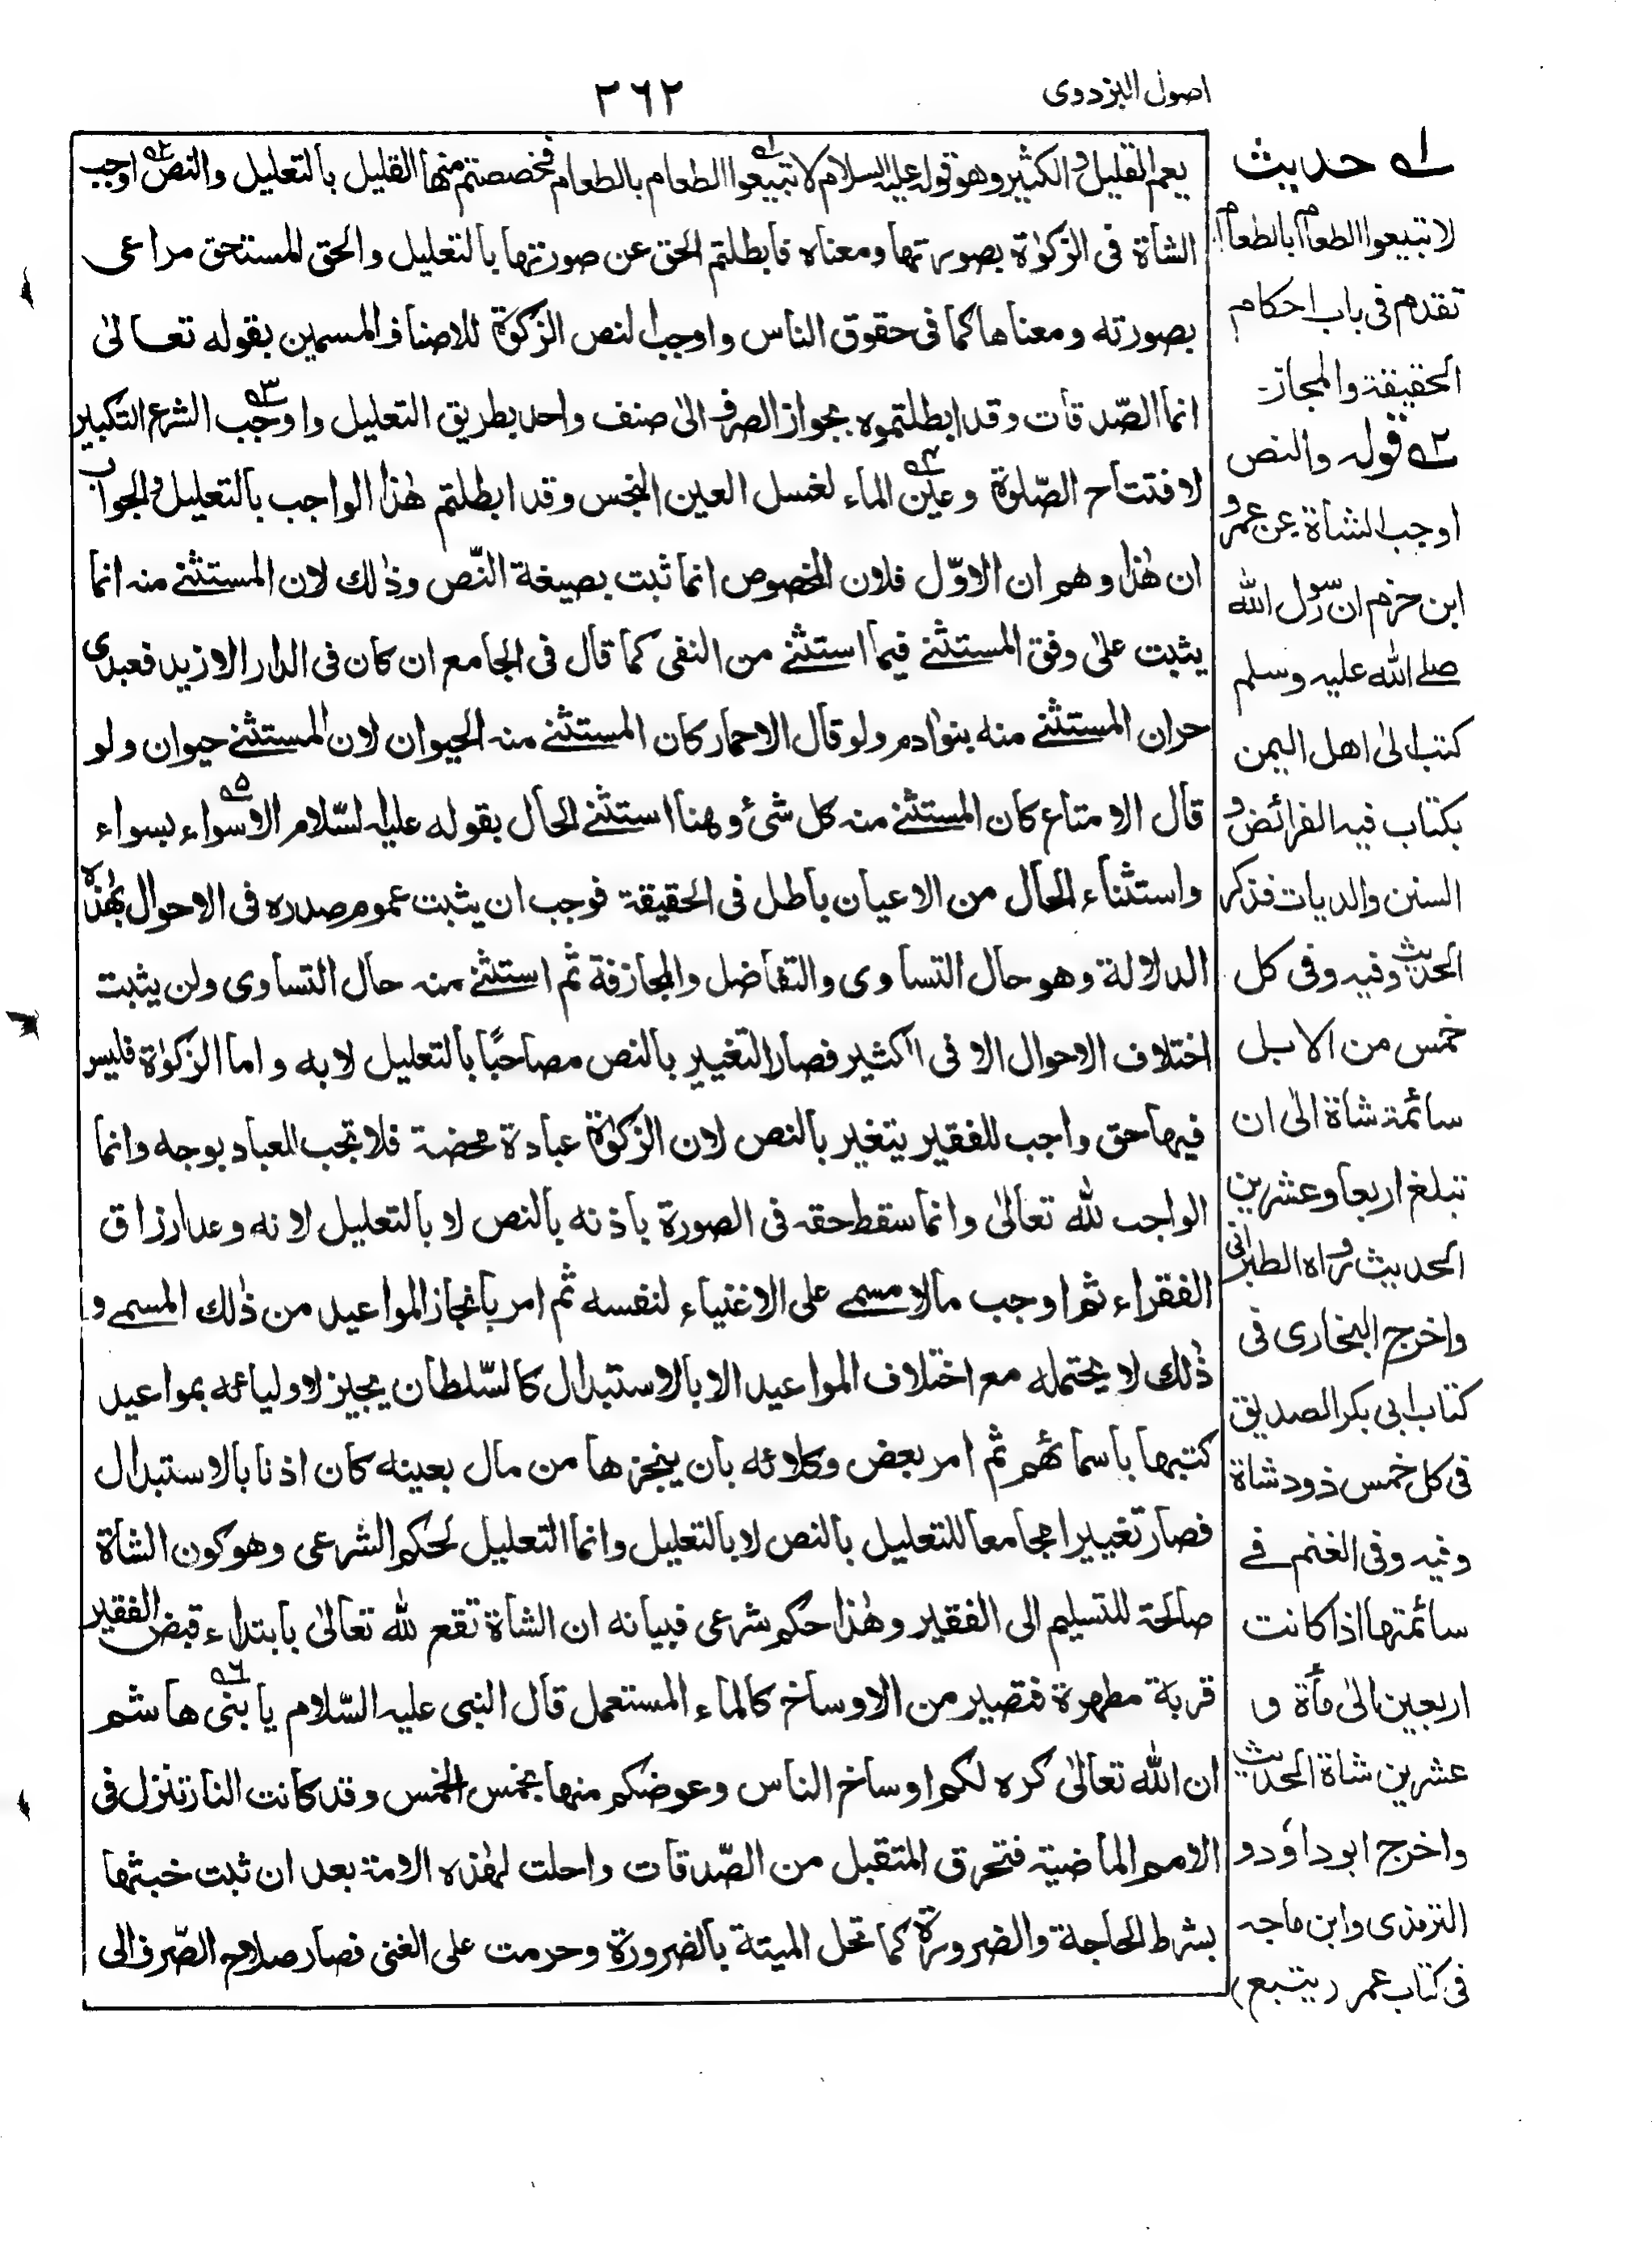 اصول البزدوی
٢٦٢
يعم القليل والكثير وهو قوله عليه السلام لا تبيعوا الطعام بالطعام فخصصتم منها القليل بالتعليل والنص اوجب
الشاة فى الزكوٰة بصورتها ومعناه فابطلتم الحق عن صورتها بالتعليل والحق للمستحق مراعى
بصورته ومعناها كما فى حقوق الناس واوجب النص الزكوٰة للاصناف المسمين بقوله تعالىٰ
انما الصّدقات وقد ابطلتموه بجواز الصرف الىٰ صنف واحد بطريق التعليل واوجب الشرع التكبير
لافتتاح الصّلوٰة وعين الماء لغسل العين النجس وقد ابطلتم هٰذا الواجب بالتعليل والجواب
ان هٰذا وهم ان الاوّل فلان الخصوص انما ثبت بصيغة النّص وذٰلك لان المستثنے منه انما
يثبت علىٰ وفق المستثنے فيما استثنے من النفى كما قال فى الجامع ان كان فى الدار الا زيد فعبدى
حر ان المستثنے منه بنوٰادم ولو قال الاحمار كان المستثنے منه الحيوان لان المستثنے حيوان ولو
قال الا متاع كان المستثنے منه كل شئ وهنا استثنے الحال بقوله عليه السّلام الا سواء بسواء
واستثناء الحال من الاعيان باطل فى الحقيقة فوجب ان يثبت عموم صدره فى الاحوال بهٰذه
الدلالة وهو حال التساوى والتفاضل والمجازفة ثم استثنے منه حال التساوى ولن يثبت
اختلاف الاحوال الا فى الكثير فصار التغيير بالنص مصاحبًا بالتعليل لا به واما الزكوٰة فليس
فيها حق واجب للفقير يتغير بالنص لان الزكوٰة عبادة محضة فلا تجب للعباد بوجه وانما
الواجب لله تعالىٰ وانما سقط حقه فى الصورة باذنه بالنص لا بالتعليل لانه وعد ارزاق
الفقراء ثم اوجب مالا مسمے على الاغنياء لنفسه ثم امر بانجاز المواعيد من ذٰلك المسمے و
ذٰلك لا يحتمله مع اختلاف المواعيد الا بالاستبدال كالسّلطان يجيز لاوليائه بمواعيد
كتبها باسمائهم ثم امر بعض وكلائه بان ينجزها من مال بعينه كان اذنا بالاستبدال
فصار تغييرا مجامعا للتعليل بالنص لا بالتعليل وانما التعليل لحكم الشرعى وهو كون الشاة
صالحة للتسليم الى الفقير وهٰذا حكم شرعى فبيانه ان الشاة تقع لله تعالىٰ بابتداء قبض الفقير
قربة مطهرة فتصير من الاوساخ كالماء المستعمل قال النبى عليه السّلام يا بنى هاشم
ان الله تعالىٰ كره لكم اوساخ الناس وعوضكم منها بخمس الخمس وقد كانت النار تنزل فى
الامم الماضية فتحرق المتقبل من الصّدقات واحلت لهٰذه الامة بعد ان ثبت خبثها
بشرط الحاجة والضرورة كما تحل الميتة بالضرورة وحرمت على الغنى فصار صلاح الصّرف الى
١ے حديث
لا تبيعوا الطعام بالطعام
تقدم فى باب احكام
الحقيقة والمجاز۔
٢ے قوله والنص
اوجب الشاة عن عمرو
ابن حزم ان رسول الله
صلے الله عليه وسلم
كتب الىٰ اهل اليمن
بكتاب فيه الفرائض و
السنن والديات فذكر
الحديث وفيه وفى كل
خمس من الابل
سائمة شاة الىٰ ان
تبلغ اربعا وعشرين
الحديث رواه الطبرانى
واخرج البخارى فى
كتاب ابى بكر الصديق
فى كل خمس ذود شاة
وفيه وفى الغنم فے
سائمتها اذا كانت
اربعين الىٰ مأة و
عشرين شاة الحديث
واخرج ابو داؤد و
الترمذى وابن ماجه
فى كتاب عمر (يتبع)